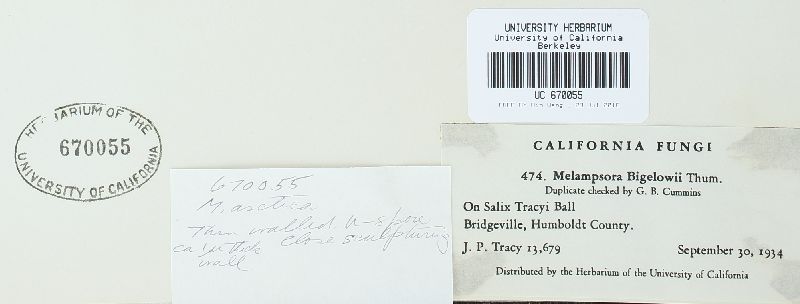 UNIVERSITY HERBARIUM
University of California
Berkeley
UC 670055
HERBARIUM OF THE
670055
UNIVERSITY OF CALIFORNIA
CALIFORNIA FUNGI
474. Melampsora Bigelowii Thum.
Duplicate checked by G. B. Cummins
On Salix Tracyi Ball
Bridgeville, Humboldt County.
J. P. Tracy 13,679 September 30, 1934
Distributed by the Herbarium of the University of California
670055
M. arctica
Thin walled u-spore
close sculpturing
wall